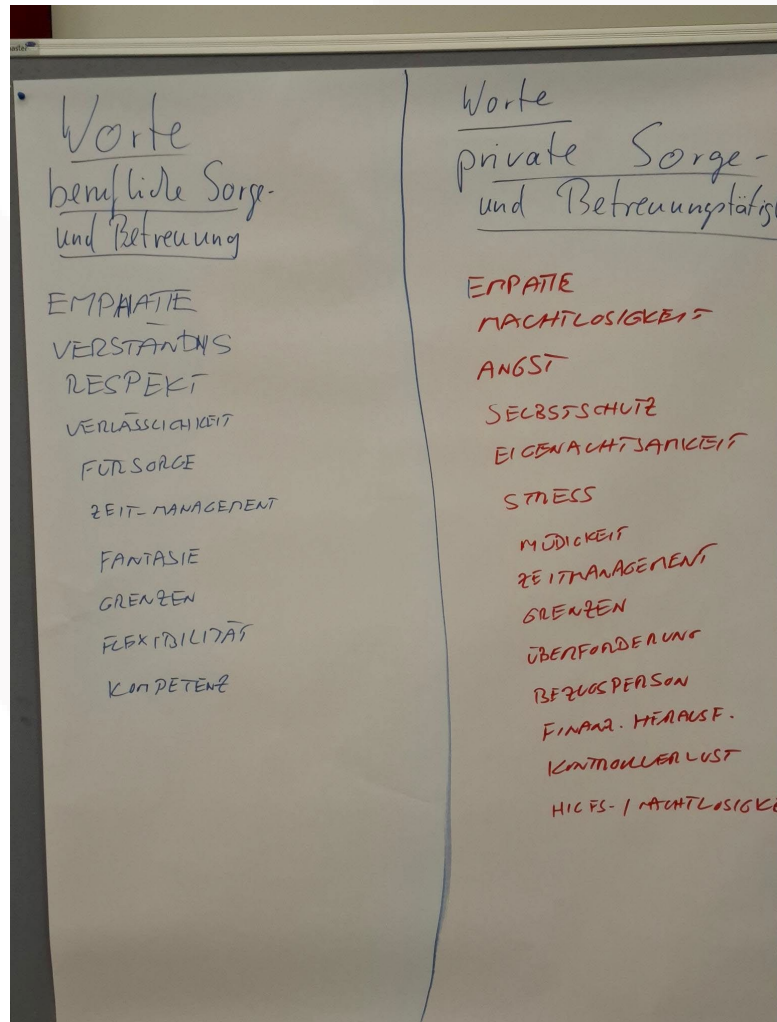 Worte
berufliche Sorge-
und Betreuung
EMPHATIE
VERSTÄNDNIS
RESPEKT
VERLÄSSLICHKEIT
FÜRSORGE
ZEIT-MANAGEMENT
FANTASIE
GRENZEN
FLEXIBILITÄT
KOMPETENZ
Worte
private Sorge-
und Betreuungstätig
EMPATIE
MACHTLOSIGKEIT
ANGST
SELBSTSCHUTZ
EIGENACHTSAMKEIT
STRESS
MÜDIGKEIT
ZEITMANAGEMENT
GRENZEN
ÜBERFORDERUNG
BEZUGSPERSON
FINANZ. HERAUSF.
KONTROLLVERLUST
HILFS- / MACHTLOSIGKE